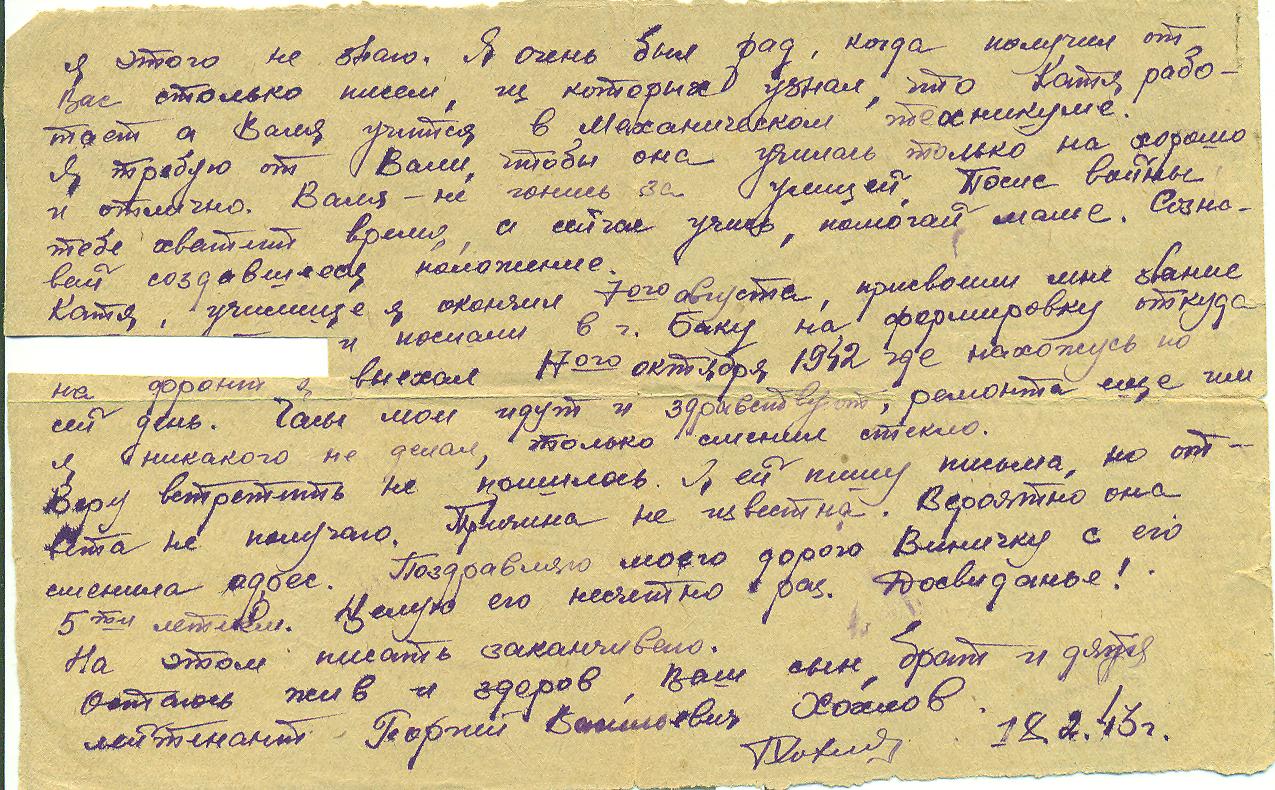 я этого не знаю. Я очень был рад, когда получил от
Вас столько писем, из которых узнал, что Катя рабо-
тает а Валя учится в Механическом техникуме.
Я требую от Вали, чтобы она училась только на хорошо
и отлично. Валя – не гонись за улицей. После войны
тебе хватит время, а сейчас учись, помогай маме. Созна-
вай создавшееся положение.
Катя, училище я окончил 7ого августа, присвоили мне звание
и послали в г. Баку на формировку откуда
на фронт я выехал 17ого октября 1942 где нахожусь по
сей день. Часы мои идут и здравствуют, ремонта еще им
я никакого не делал, только сменил стекло.
Веру встретить не пришлось. Я ей пишу письма, но от-
вета не получаю. Причина не известна. Вероятно она
сменила адрес. Поздравляю моего дорого Виничку с его
5ти летием. Целую его несчетно раз. Досвиданье!
На этом писать заканчиваю.
Остаюсь жив и здоров, Ваш сын, брат и дядя
лейтенант Георгий Васильевич Хохлов.
18.2.43г.